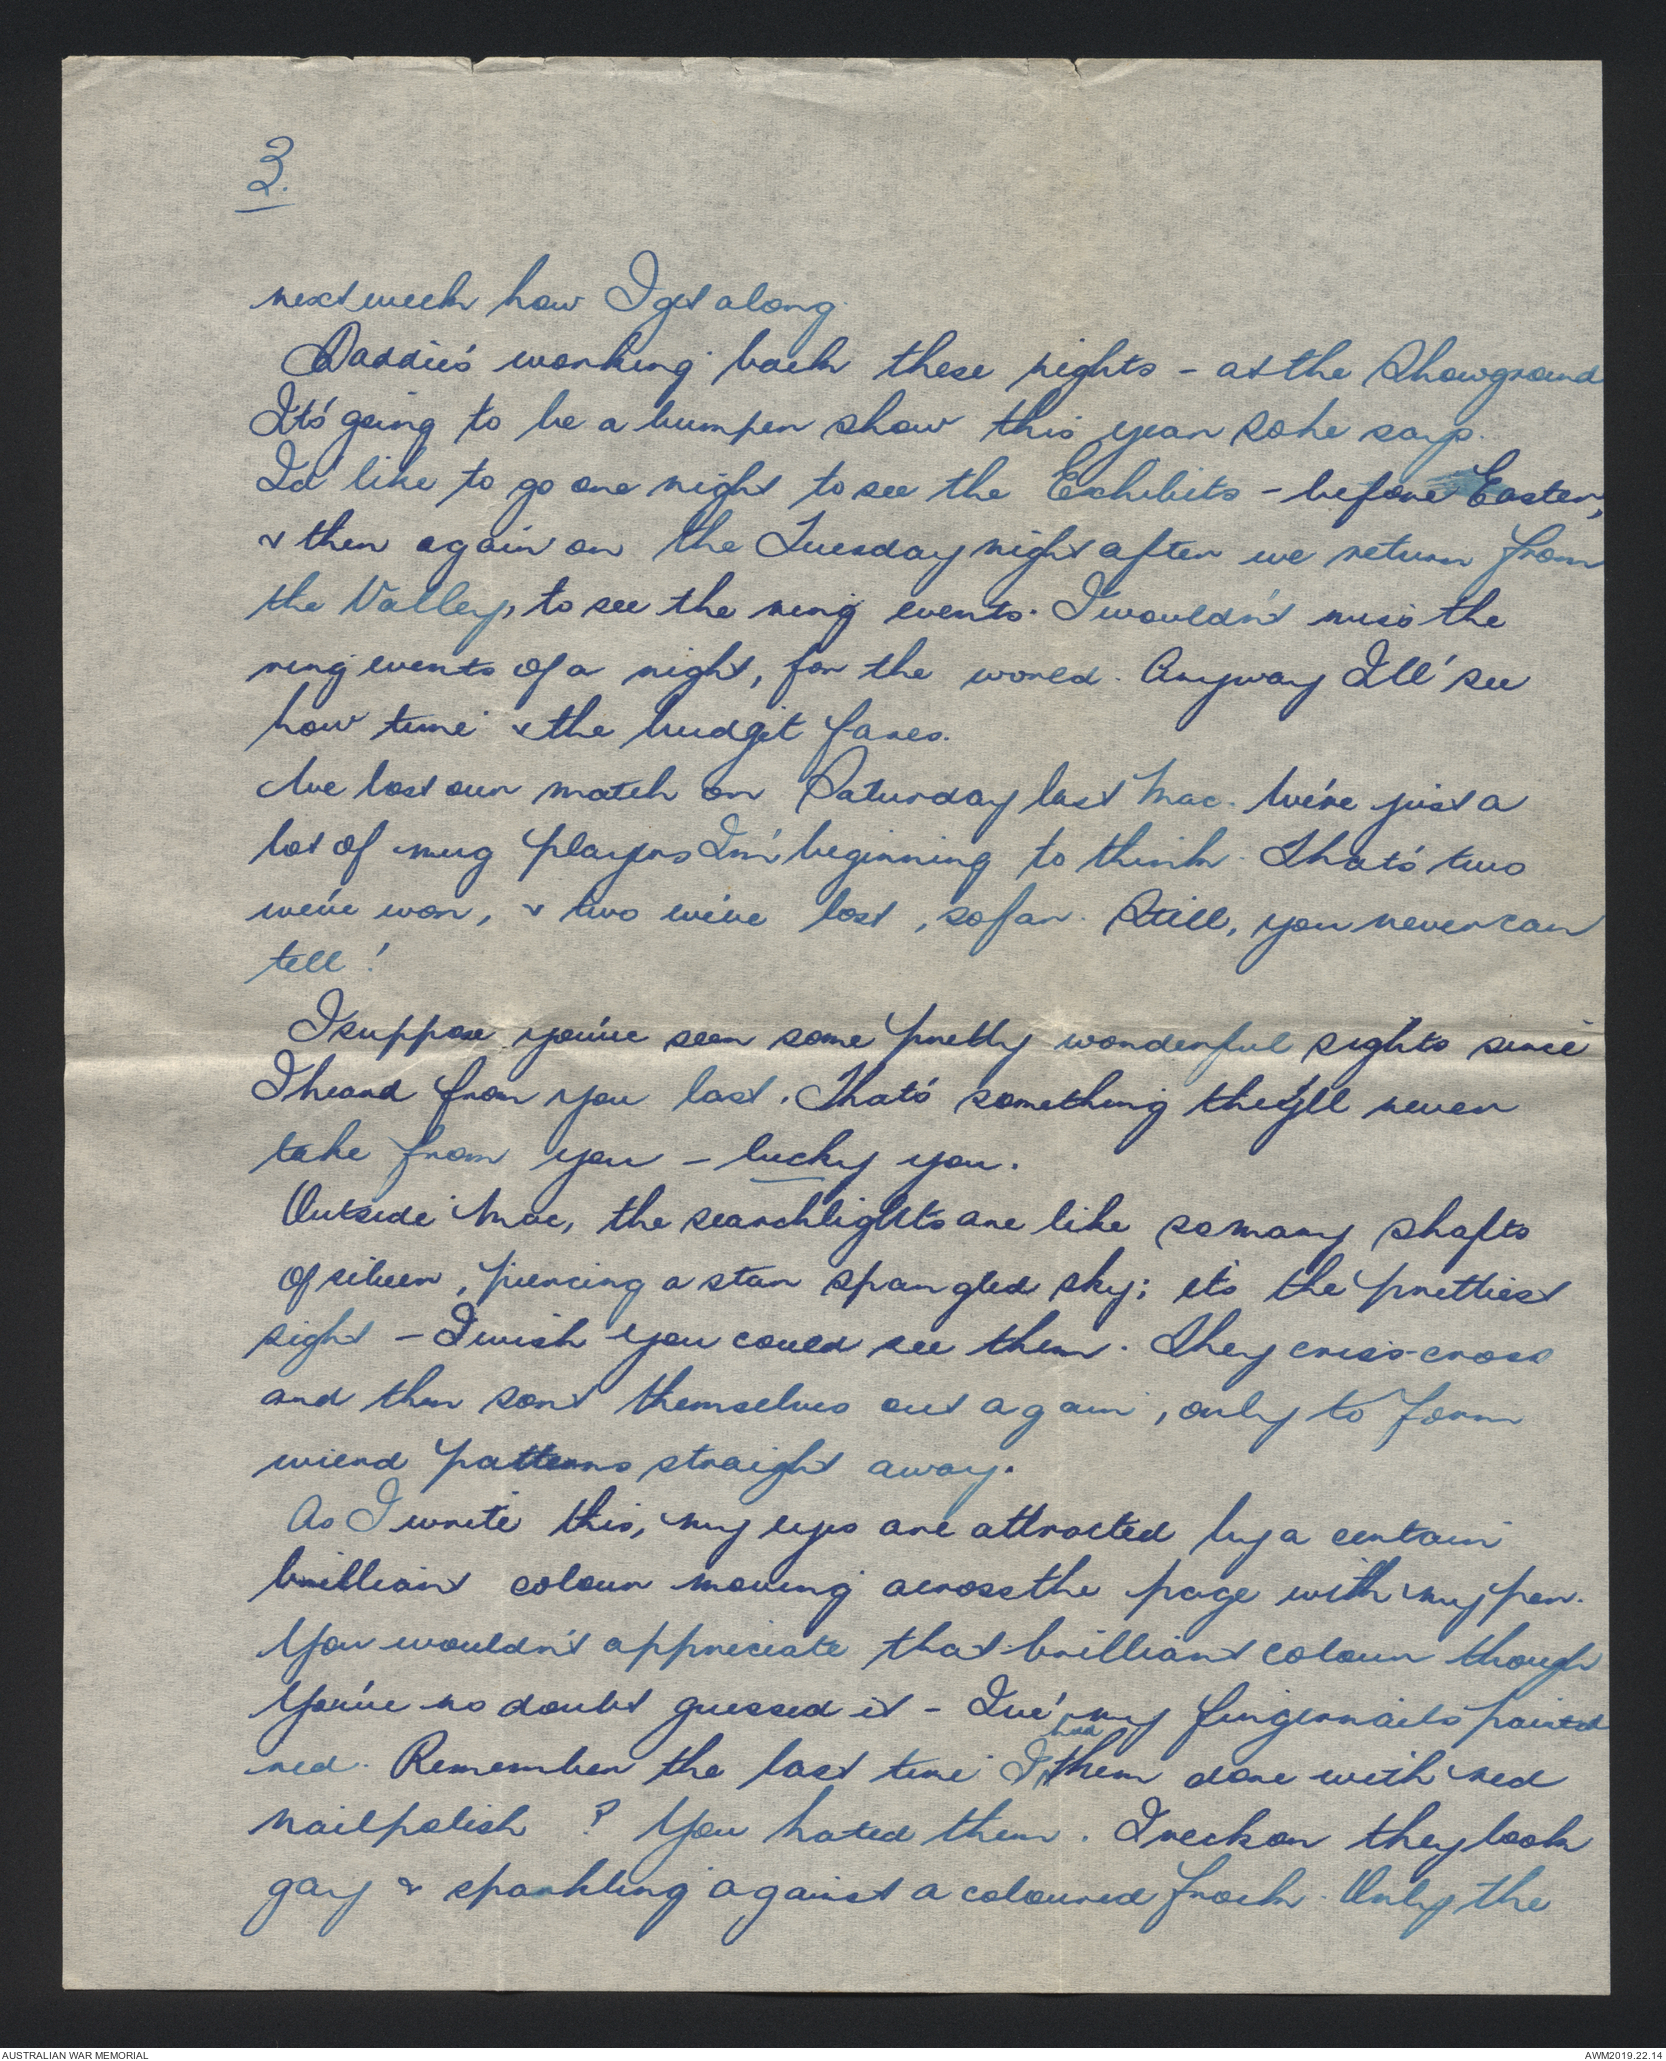 3.
next week how I get along.
Daddie's working back these nights - at the Showground
It's going to be a bumper show this year so he says.
I'd like to go one night to see the Exhibits - before Easter,
& then again on the Tuesday night after we return from
the Valley, to see the ring events. I wouldn't miss the
ring events of a night, for the world. Anyway I'll see
how time & the budget fares.
We lost our match on Saturday last Mac. We're just a
lot of mug players I'm beginning to think. That's two
we've won, & two we've lost, so far. Still, you never can
tell!
I suppose you've seen some pretty wonderful sights since
I heard from you last. That's something they'll never
take from you - lucky you.
Outside Mac, the searchlights are like so many shafts
of silver, piercing a star spangled sky; it's the prettiest
sight - I wish you could see them. They criss-cross
and then sort themselves out again, only to form
wierd patterns straight away.
As I write this, my eyes are attracted by a certain
brilliant colour moving across the page with my pen.
You wouldn't appreciate that brilliant colour though
You've no doubt guessed it - I've my fingernails painted
red. Remember the last time I had them done with red
nailpolish? You hated them. I reckon they look
gay & sparkling against a coloured frock. Only the
AUSTRALIAN WAR MEMORIAL
AWM2019.22.14